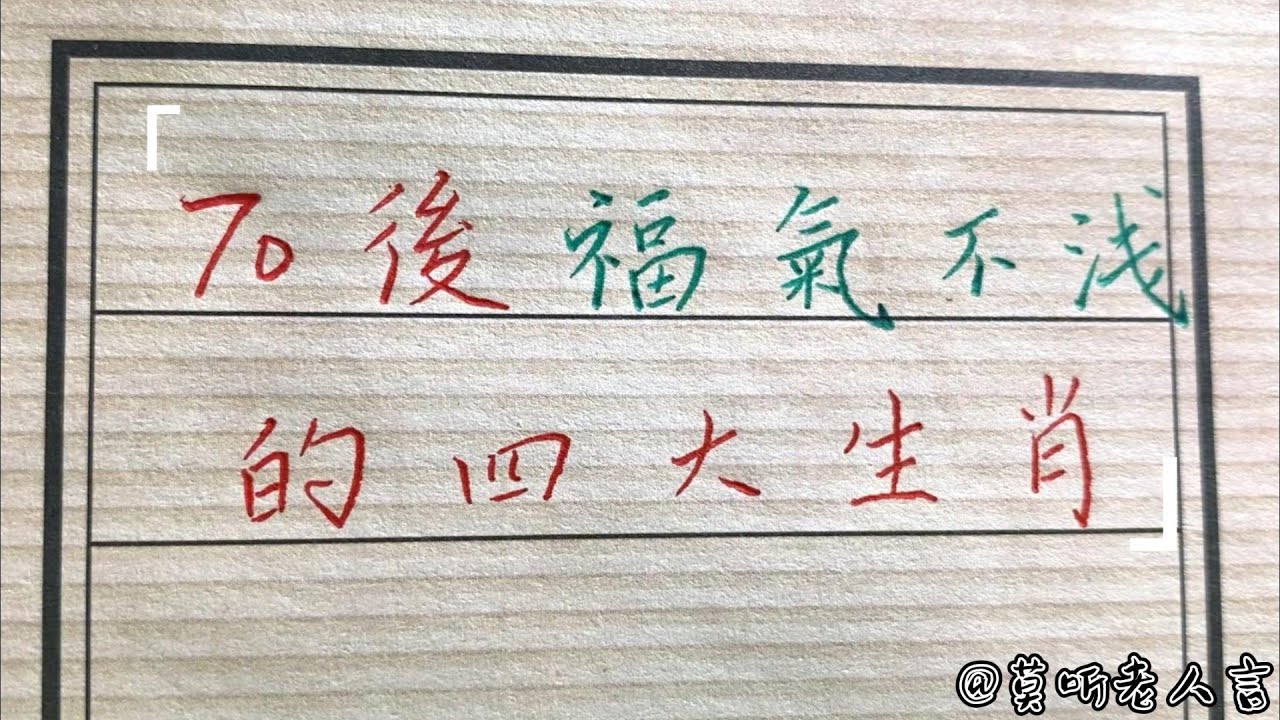 70後福氣不浅
的四大生肖
@莫听老人言